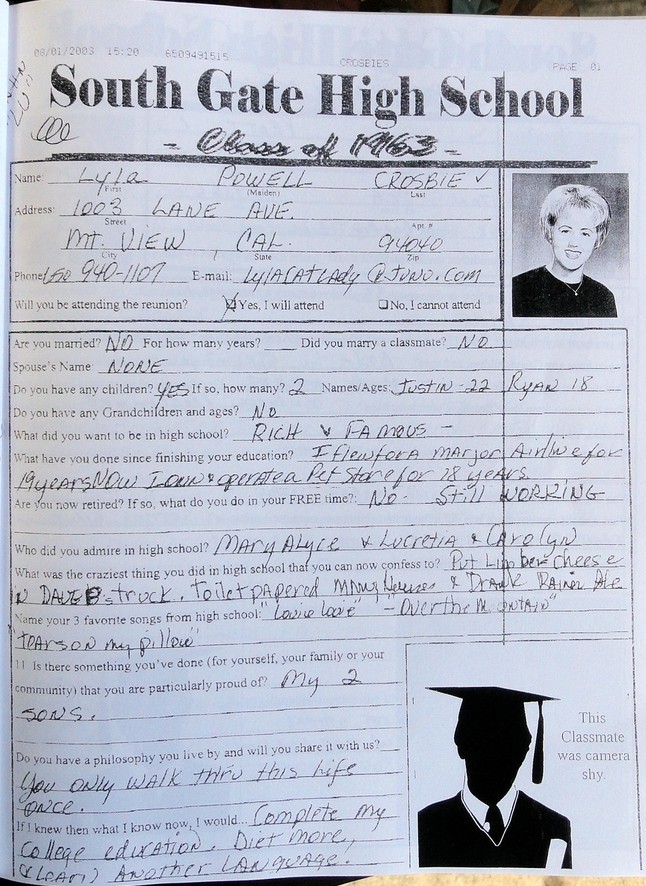 08/01/2003 15:20 6509491515 CROSBIES PAGE 01
South Gate High School
- Class of 1963 -
Name: Lyla POWELL CROSBIE ✓
First (Maiden) Last
Address: 1003 LANE AVE.
Street Apt. #
MT. VIEW, CAL. 94040
City State Zip
Phone 650 940-1107 E-mail: LylACATLADY @JUNO.COM
Will you be attending the reunion? ☒Yes, I will attend ☐No, I cannot attend
Are you married? NO For how many years? ___ Did you marry a classmate? NO
Spouse's Name: NONE
Do you have any children? YES If so, how many? 2 Names/Ages: JUSTIN-22 RYAN 18
Do you have any Grandchildren and ages? No
What did you want to be in high school? RICH & FAMOUS -
What have you done since finishing your education? I flew for a Marjor Airline for
19 years Now I own & operate a Pet Store for 18 years
Are you now retired? If so, what do you do in your FREE time?: No - Still WORKING
Who did you admire in high school? MARY Alyce & Lucretia & Carolyn
What was the craziest thing you did in high school that you can now confess to? Put Limber cheese
N DAVE B's truck. Toilet papered MANy Houses & Drank Rainer Ale
Name your 3 favorite songs from high school: "Louie Louie" - "Over the M ontain"
"Tears on my pillow"
11 Is there something you've done (for yourself, your family or your
community) that you are particularly proud of? My 2
SONS.
Do you have a philosophy you live by and will you share it with us?
You only WALK thru this life
once.
If I knew then what I know now, I would... Complete my
College education. Diet more,
& (learn) Another LANGUAGE.
This
Classmate
was camera
shy.